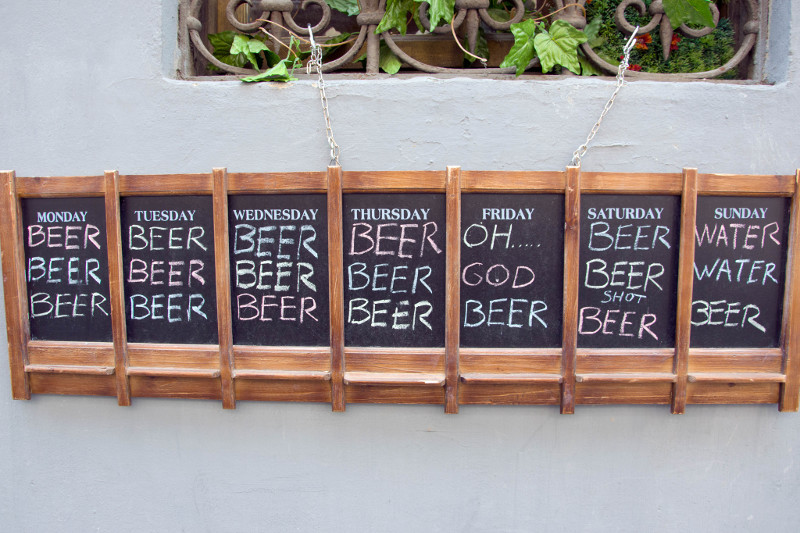 MONDAY
BEER
BEER
BEER
TUESDAY
BEER
BEER
BEER
WEDNESDAY
BEER
BEER
BEER
THURSDAY
BEER
BEER
BEER
FRIDAY
OH.....
GOD
BEER
SATURDAY
BEER
BEER
SHOT
BEER
SUNDAY
WATER
WATER
BEER